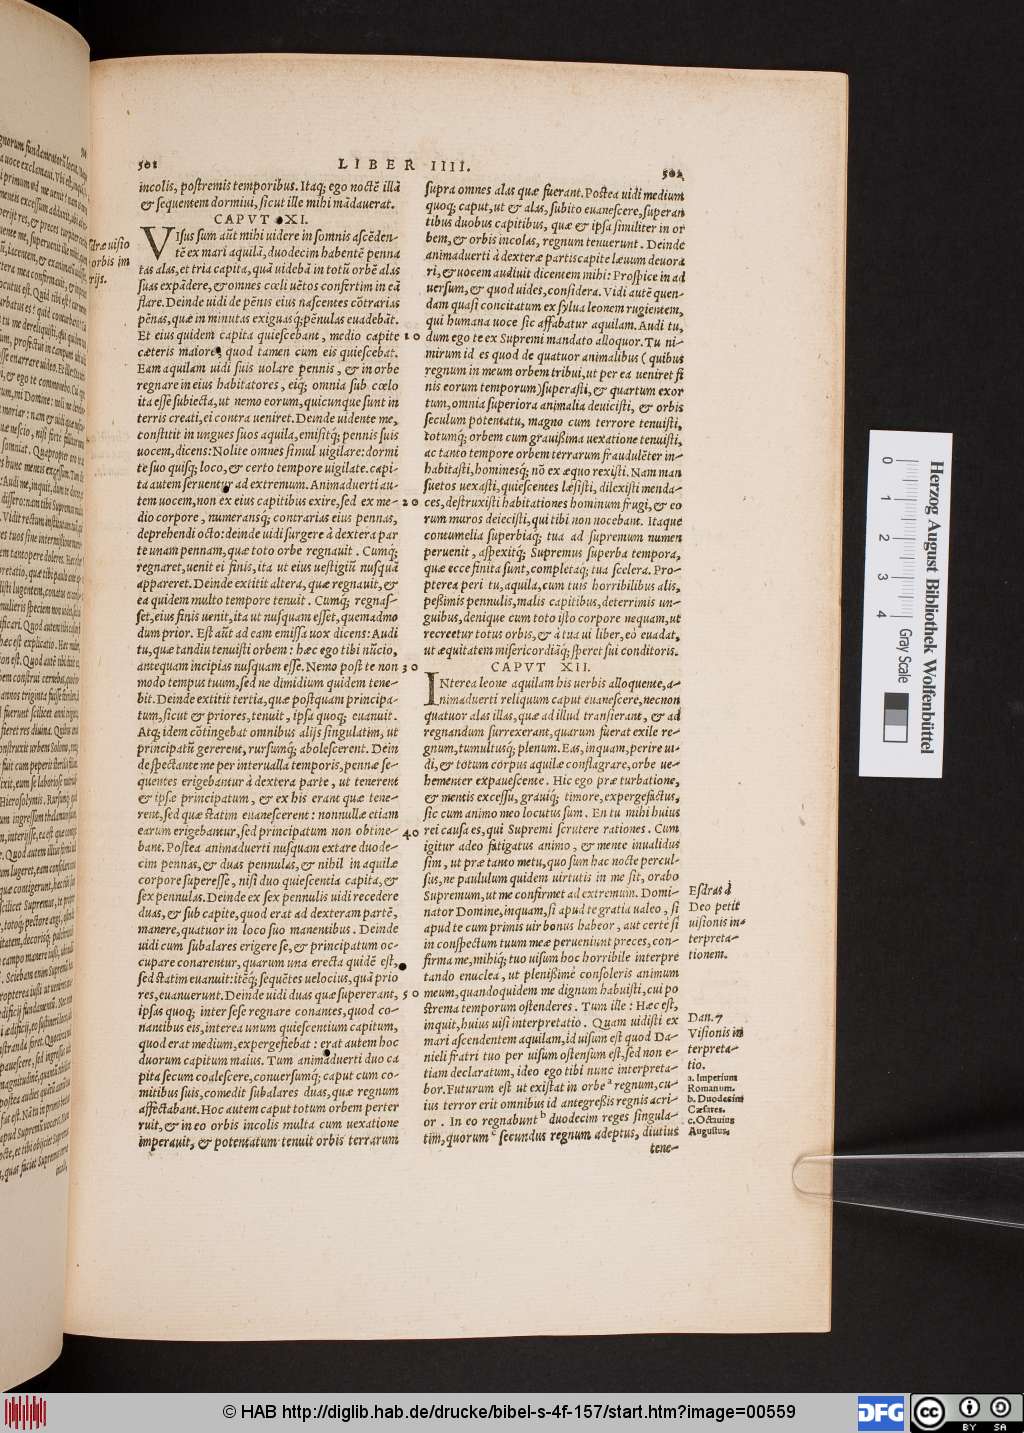 501
LIBER IIII.
502
incolis, postremis temporibus. Itaq; ego noctē illā
& sequentem dormiui, sicut ille mihi mādauerat.
CAPVT XI.
VIsus sum aūt mihi uidere in somnis ascēden-
tē ex mari aquilā, duodecim habentē penna
tas alas, et tria capita, quā uidebā in totū orbē alas
suas expādere, & omnes cœli uētos confertim in eā
flare. Deinde uidi de pēnis eius nascentes cōtrarias
pēnas, quæ in minutas exiguasq; pēnulas euadebāt.
Et eius quidem capita quiescebant, medio capite
cæteris maiore, quod tamen cum eis quiescebat.
Eam aquilam uidi suis uolare pennis, & in orbe
regnare in eius habitatores, eiq; omnia sub cœlo
ita esse subiecta, ut nemo eorum, quicunque sunt in
terris creati, ei contra ueniret. Deinde uidente me,
constitit in ungues suos aquila, emisitq; pennis suis
uocem, dicens: Nolite omnes simul uigilare: dormi
te suo quisq; loco, & certo tempore uigilate. capi-
ta autem seruentur ad extremum. Animaduerti au-
tem uocem, non ex eius capitibus exire, sed ex me-
dio corpore, numeransq; contrarias eius pennas,
deprehendi octo: deinde uidi surgere à dextera par
te unam pennam, quæ toto orbe regnauit. Cumq;
regnaret, uenit ei finis, ita ut eius uestigiū nusquā
appareret. Deinde extitit altera, quæ regnauit, &
ea quidem multo tempore tenuit. Cumq; regnas-
set, eius finis uenit, ita ut nusquam esset, quemadmo
dum prior. Est aūt ad eam emissa uox dicens: Audi
tu, quæ tandiu tenuisti orbem: hæc ego tibi nūcio,
antequam incipias nusquam esse. Nemo post te non
modo tempus tuum, sed ne dimidium quidem tene-
bit. Deinde extitit tertia, quæ postquam principa-
tum, sicut & priores, tenuit, ipsa quoq; euanuit.
Atq; idem cōtingebat omnibus alijs singulatim, ut
principatū gererent, rursumq; abolescerent. Dein
de spectante me per interualla temporis, pennæ se-
quentes erigebantur à dextera parte, ut tenerent
& ipsæ principatum, & ex his erant quæ tene-
rent, sed quæ statim euanescerent: nonnullæ etiam
earum erigebantur, sed principatum non obtine-
bant. Postea animaduerti nusquam extare duode-
cim pennas, & duas pennulas, & nihil in aquilæ
corpore superesse, nisi duo quiescentia capita, &
sex pennulas. Deinde ex sex pennulis uidi recedere
duas, & sub capite, quod erat ad dexteram partē,
manere, quatuor in loco suo manentibus. Deinde
uidi cum subalares erigere se, & principatum oc-
cupare conarentur, quarum una erecta quidē est,
sed statim euanuit: itēq; sequētes uelocius, quā prio
res, euanuerunt. Deinde uidi duas quæ supererant,
ipsas quoq; inter sese regnare conantes, quod co-
nantibus eis, interea unum quiescentium capitum,
quod erat medium, expergefiebat: erat autem hoc
duorum capitum maius. Tum animaduerti duo ca
pita secum coalescere, conuersumq; caput cum co-
mitibus suis, comedit subalares duas, quæ regnum
affectabant. Hoc autem caput totum orbem perter
ruit, & in eo orbis incolis multa cum uexatione
imperauit, & potentatum tenuit orbis terrarum
10
20
30
40
50
supra omnes alas quæ fuerant. Postea uidi medium
quoq; caput, ut & alas, subito euanescere, superan
tibus duobus capitibus, quæ & ipsa similiter in or
bem, & orbis incolas, regnum tenuerunt. Deinde
animaduerti à dexteræ partis capite læuum deuora
ri, & uocem audiuit dicentem mihi: Prospice in ad
uersum, & quod uides, considera. Vidi autē quen-
dam quasi concitatum ex sylua leonem rugientem,
qui humana uoce sic affabatur aquilam. Audi tu,
dum ego te ex Supremi mandato alloquor. Tu ni-
mirum id es quod de quatuor animalibus (quibus
regnum in meum orbem tribui, ut per ea ueniret fi
nis eorum temporum) superasti, & quartum exor
tum, omnia superiora animalia deuicisti, & orbis
seculum potentatu, magno cum terrore tenuisti,
totumq; orbem cum grauißima uexatione tenuisti,
ac tanto tempore orbem terrarum fraudulēter in-
habitasti, hominesq; nō ex æquo rexisti. Nam man
suetos uexasti, quiescentes læsisti, dilexisti menda-
ces, destruxisti habitationes hominum frugi, & eo
rum muros deiecisti, qui tibi non nocebant. Itaque
contumelia superbiaq; tua ad supremum numen
peruenit, aspexitq; Supremus superba tempora,
quæ ecce finita sunt, completaq; tua scelera. Pro-
pterea peri tu, aquila, cum tuis horribilibus alis,
peßimis pennulis, malis capitibus, deterrimis un-
guibus, denique cum toto isto corpore nequam, ut
recreetur totus orbis, & à tua ui liber, eò euadat,
ut æquitatem misericordiāq; speret sui conditoris.
CAPVT XII.
INterea leone aquilam his uerbis alloquente, a-
nimaduerti reliquum caput euanescere, necnon
quatuor alas illas, quæ ad illud transierant, & ad
regnandum surrexerant, quarum fuerat exile re-
gnum, tumultusq; plenum. Eas, inquam, perire ui-
di, & totum corpus aquilæ conflagrare, orbe ue-
hementer expauescente. Hic ego præ turbatione,
& mentis excessu, grauiq; timore, expergefactus,
sic cum animo meo locutus sum. En tu mihi huius
rei causa es, qui Supremi scrutere rationes. Cum
igitur adeo fatigatus animo, & mente inualidus
sim, ut præ tanto metu, quo sum hac nocte percul-
sus, ne paululum quidem uirtutis in me sit, orabo
Supremum, ut me confirmet ad extremum. Domi-
nator Domine, inquam, si apud te gratia ualeo, si
apud te cum primis uir bonus habeor, aut certè si
in conspectum tuum meæ perueniunt preces, con-
firma me, mihiq; tuo uisum hoc horribile interpre
tando enuclea, ut plenißimè consoleris animum
meum, quandoquidem me dignum habuisti, cui po
strema temporum ostenderes. Tum ille: Hæc est,
inquit, huius uisi interpretatio. Quam uidisti ex
mari ascendentem aquilam, id uisum est quod Da-
nieli fratri tuo per uisum ostensum est, sed non e-
tiam declaratum, ideo ego tibi nunc interpreta-
bor. Futurum est ut existat in orbe a regnum, cu-
ius terror erit omnibus id antegreßis regnis acri-
or. In eo regnabunt b duodecim reges singula-
tim, quorum c secundus regnum adeptus, diutius
tene-
Esdras à
Deo petit
uisionis in-
terpreta-
tionem.
Dan. 7
Visionis in
terpreta-
tio.
a. Imperium
Romanum.
b. Duodecim
Cæsares.
c. Octauius
Augustus.
Herzog August Bibliothek Wolfenbüttel
0 1 2 3 4
Gray Scale
© HAB http://diglib.hab.de/drucke/bibel-s-4f-157/start.htm?image=00559
DFG
cc BY SA